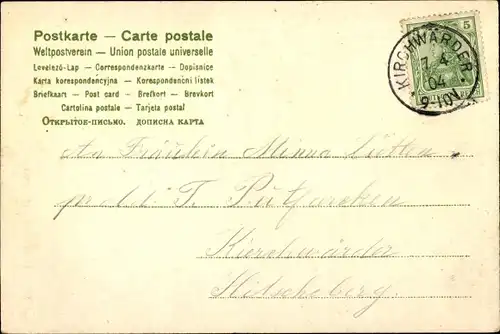 Postkarte — Carte postale
Weltpostverein — Union postale universelle
Levelező-Lap — Correspondenzkarte — Dopisnice
Karta korespondencyjna — Korespondenční lístek
Briefkaart — Post card — Brefkort — Brevkort
Cartolina postale — Tarjeta postal
Открытое-письмо. дописна карта
5
KIRCHWÄRDER
7 4
04
9-10V
An Fräulein Minna
pr. Ad. T. Putfarcken
Kirchwärder